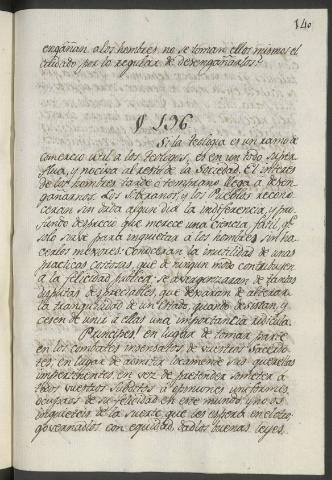 140
engañan a los hombres, no se toman ellos mismos el
cuidado por lo regular de desengañarlos.
§ 196
Si la teologia es un ramo de
comercio util a los teologos, es en un todo super
flua, y nociva al resto de la Sociedad. El interes
de los hombres tarde o temprano llega a desen
gañarnos. Los Soberanos, y los Pueblos recono
ceran sin duda algun dia la indiferencia, y pro
fundo desprecio que merece una ciencia futil, qe.
solo sirve para inquietar a los hombres sin ha
cerlos mejores: Conoceran la inutilidad de unas
practicas costosas, que de ningun modo contribuyen
a la felicidad publica: se avergonzaran de tantas
disputas despreciables, que dejaran de alterar
la tranquilidad de un Estado, quando desistan, y
cesen de unir a ellas una importancia ridicula.
Principes! en lugar de tomar parte
en los combates insensatos de vuestros Sacerdo
tes, en lugar de admitir locamente sus querellas
impertinentes, en vez de pretender someter a
todos vuestros Subditos a opiniones uniformes,
ocupaos de su felicidad en este mundo, y no os
inquieteis de la suerte que les espera en el otro.
governadlos con equidad, dadlos buenas leyes,